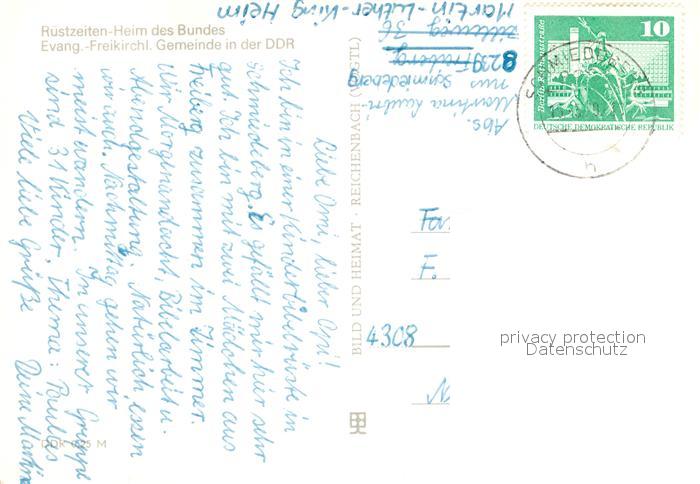 Rüstzeiten-Heim des Bundes
Evang.-Freikirchl. Gemeinde in der DDR
Liebe Omi, lieber Opi!
Ich bin in einer Kinderbibelrüste in
Schmiedeberg. Es gefällt mir hier sehr
gut. Ich bin mit zwei Mädchen aus
Freiberg zusammen im Zimmer.
Wir Morgenandacht, Bibelarbeit u.
Abendgestaltung. Natürlich essen
wir auch. Nachmittag gehen wir
meist wandern. In unserer Gruppe
sind 31 Kinder. Thema: Paulus
Viele liebe Grüße Deine
DDR M
BILD UND HEIMAT · REICHENBACH (VOGTL)
Abs.
aus Schmiedeberg
8239
36
Martin-Luther-King Heim
10
Berlin, Rathausstraße
DEUTSCHE DEMOKRATISCHE REPUBLIK
SCHMIEDEBERG
h
Fa
F.
4308
privacy protection
Datenschutz